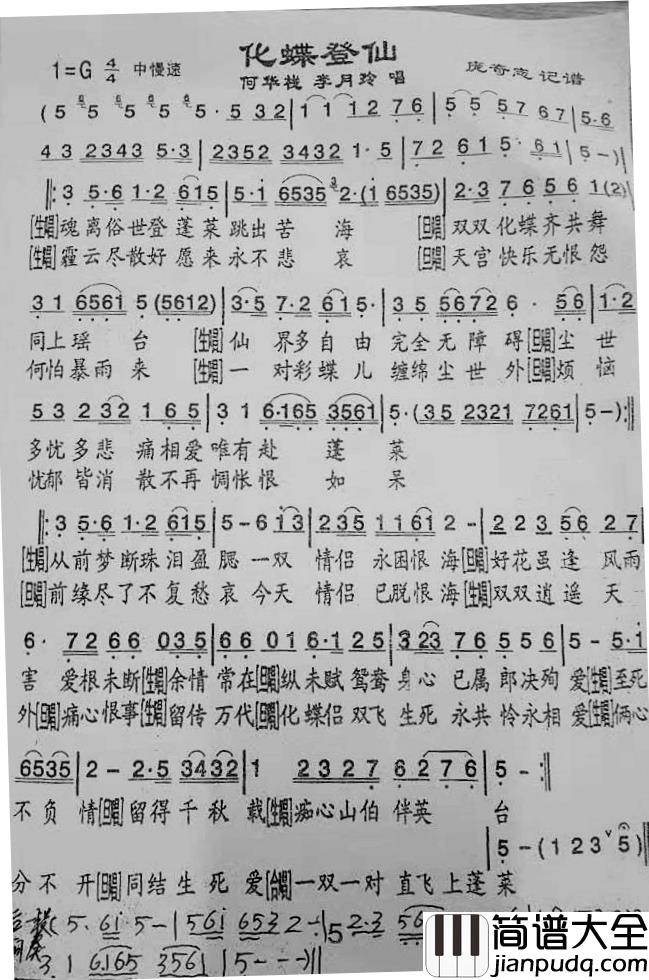 化蝶登仙
1=G 4/4 中慢速
何华栈 李月玲 唱
庞奇志 记谱
(5 5 5 5 5 · 5 32 | 1 1 12 76 | 5 5 5 67 | 5·6
43 2343 5·3 | 2352 3432 1· | 72 61 5· 61 | 5 -)
‖: 3 5·6 1·2 615 | 5·1 6535 2·(1 6535) | 2·3 76 56 1(2)
[生唱]魂离俗世登蓬莱跳出苦海 [旦唱]双双化蝶齐共舞
[生唱]霾云尽散好愿来永不悲哀 [旦唱]天宫快乐无恨怨
31 6561 5 (5612) | 3·5 7·2 61 5· | 35 5672 6· 56 | 1·2
同上瑶台 [生唱]仙界多自由完全无障碍[旦唱]尘世
何怕暴雨来 [生唱]一对彩蝶儿缠绵尘世外[旦唱]烦恼
53 232 1 65 | 31 6·165 3561 | 5·(35 2321 7261 | 5 -) :‖
多忧多悲痛相爱唯有赴蓬莱
忧郁皆消散不再惆怅恨如呆
‖: 3 5·6 1·2 615 | 5 - 6 13 | 235 1161 2 - | 2 23 56 27
[生唱]从前梦断珠泪盈腮一双情侣永困恨海[旦唱]好花虽逢风雨
[旦唱]前缘尽了不复愁哀今天情侣已脱恨海[生唱]双双逍遥天
6· 72 66 035 | 66 01 6·1 5 | 3 23 76 55 6 | 5 - 5·1
害 爱根未断[生唱]余情常在[旦唱]纵未赋鸳鸯身心已属郎决殉爱[生唱]至死
外[旦唱]痛心恨事[生唱]留传万代[旦唱]化蝶侣双飞生死永共怜永相爱[生唱]俩心
6535 | 2 - 2·5 3432 | 1 23 27 62 76 | 5 - :‖
不负情[旦唱]留得千秋载[生唱]痴心山伯伴英台
5 - (123 5)
分不开[旦唱]同结生死爱[合唱]一双一对直飞上蓬莱
(5· 61 5 - | 561 653 2 - | 5 2·3
3·1 6165 3561 | 5 - - -)‖
简谱大全
www.jianpudq.com